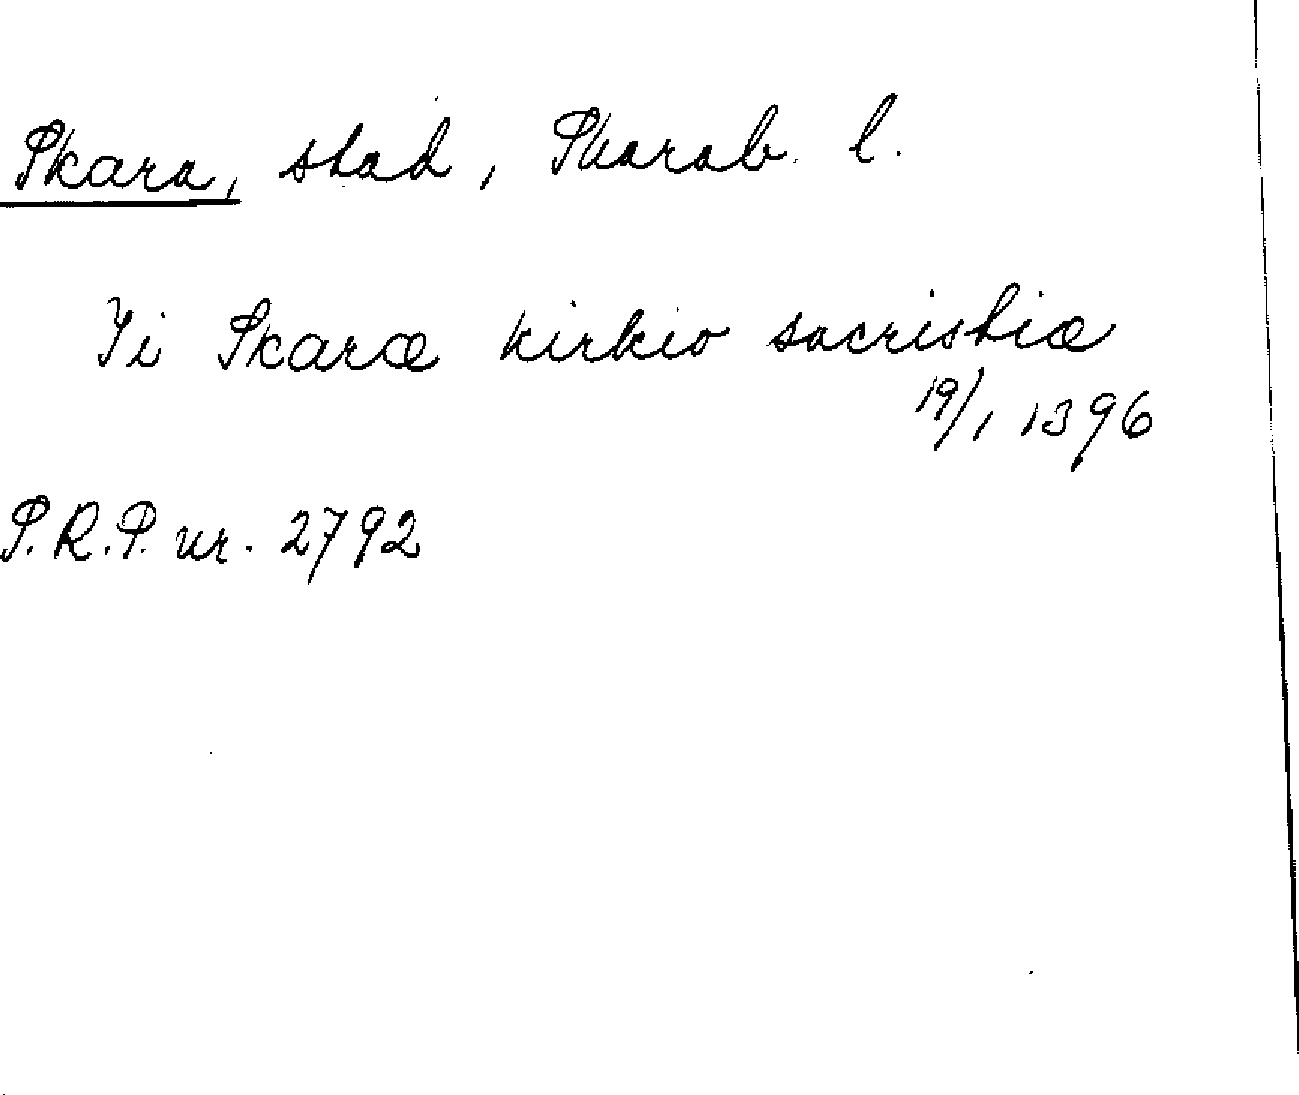 Skara, stad, Skarab. l.
Ji Skaræ kirkio sacristiæ
19/1 1396
S.R.P. nr. 2792